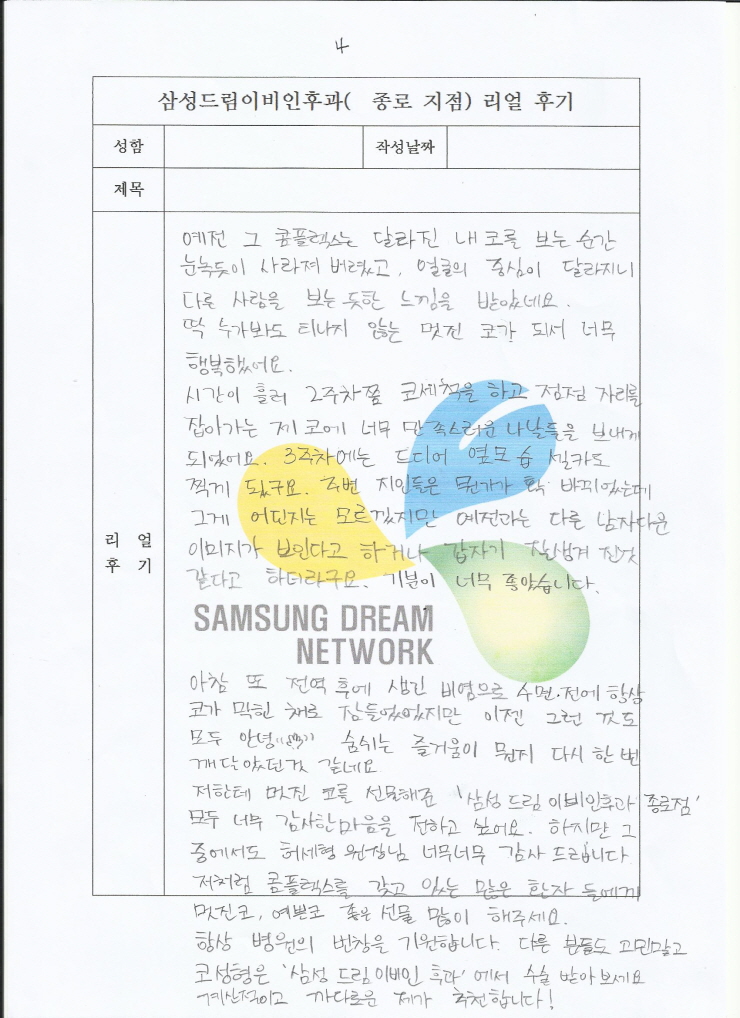 4
삼성드림이비인후과( 종로 지점) 리얼 후기
성함 작성날짜
제목
리 얼
후 기
예전 그 콤플렉스는 달라진 내 코를 보는 순간
눈녹듯이 사라져 버렸고, 얼굴의 중심이 달라지니
다른 사람을 보는 듯한 느낌을 받았네요.
딱 누가봐도 티나지 않는 멋진 코가 되서 너무
행복했어요.
시간이 흘러 2주차쯤 코세척을 하고 점점 자리를
잡아가는 제 코에 너무 만족스러운 나날들을 보내게
되었어요. 3주차에는 드디어 옆모습 셀카도
찍게 됬구요. 주변 지인들은 뭔가가 확 바뀌었는데
그게 어딘지는 모르겠지만 예전과는 다른 남자다운
이미지가 보인다고 하거나 갑자기 잘생겨 진것
같다고 하더라구요. 기분이 너무 좋았습니다.
SAMSUNG DREAM
NETWORK
아참 또 전역 후에 생긴 비염으로 수면 전에 항상
코가 막힌 채로 잠들었었지만 이젠 그런 것도
모두 안녕 숨쉬는 즐거움이 뭔지 다시 한 번
깨달았던것 같네요
저한테 멋진 코를 선물해준 '삼성 드림 이비인후과 종로점'
모두 너무 감사한마음을 전하고 싶어요. 하지만 그
중에서도 허세형 원장님 너무너무 감사 드립니다
저처럼 콤플렉스를 갖고 있는 많은 환자 들에게
멋진코, 예쁜코 좋은 선물 많이 해주세요.
항상 병원의 번창을 기원합니다. 다른 분들도 고민말고
코성형은 '삼성 드림 이비인 후과'에서 수술 받아보세요
계산적이고 까다로운 제가 추천합니다!